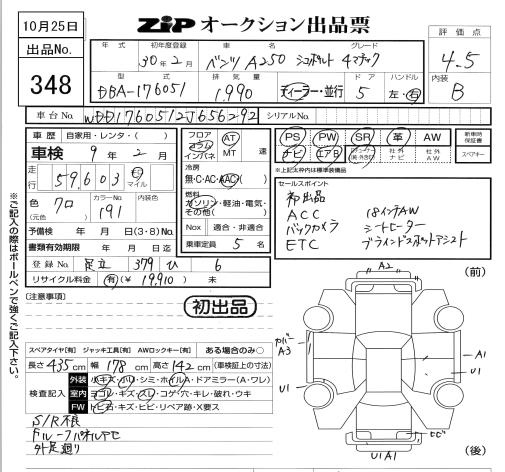 10月25日
出品No.
348
ZIP オークション出品票
評価点
4.5
内装
B
年式 初年度登録 車名 グレード
30年2月 ベンツ A250 シュポルト 4マチック
型式 排気量 ドア ハンドル
DBA-176051 1,990 ディーラー・並行 5 左・右
車台No. WDD1760512J656292 シリアルNo.
車歴 自家用・レンタ・( )
車検 9年2月
走行 59,603 キロ マイル
色 クロ (元色) カラーNo. 191
予備検 年 月 日(3・8)No.
書類有効期限 年 月 日迄
登録No. 足立 379 ひ 6
リサイクル料金 有(¥ 19,910 ) 無
フロア コラム インパネ AT MT 速
冷房
無・C・AC・AAC
燃料
ガソリン・軽油・電気・その他( )
Nox 適合・非適合
乗車定員 5 名
PS PW SR 革 AW
ナビ エアB 社外ナビ 社外AW
新車時保証書
スペアキー
※上記太枠内は標準装備品
セールスポイント
初出品
ACC 18インチAW
バックカメラ シートヒーター
ETC ブラインドスポットアシスト
※ご記入の際はボールペンで強くご記入下さい。
[注意事項]
初出品
スペアタイヤ[有] ジャッキ工具[有] AWロックキー[有] ある場合のみ○
長さ 435 cm 幅 178 cm 高さ 142 cm (車検証上の寸法)
検査記入
外装 小キズ・小U・シミ・ホイルA・ドアミラー(A・ワレ)
室内 ヨゴレ・キズ・スレ・コゲ・穴・キレ・破れ・ウキ
FW トビ石・キズ・ヒビ・リペア跡・X要ス
S/R不良
外足廻り
(前)
A2
カバー A3
A1
U1
U1
ヒビ
U1 A1
(後)